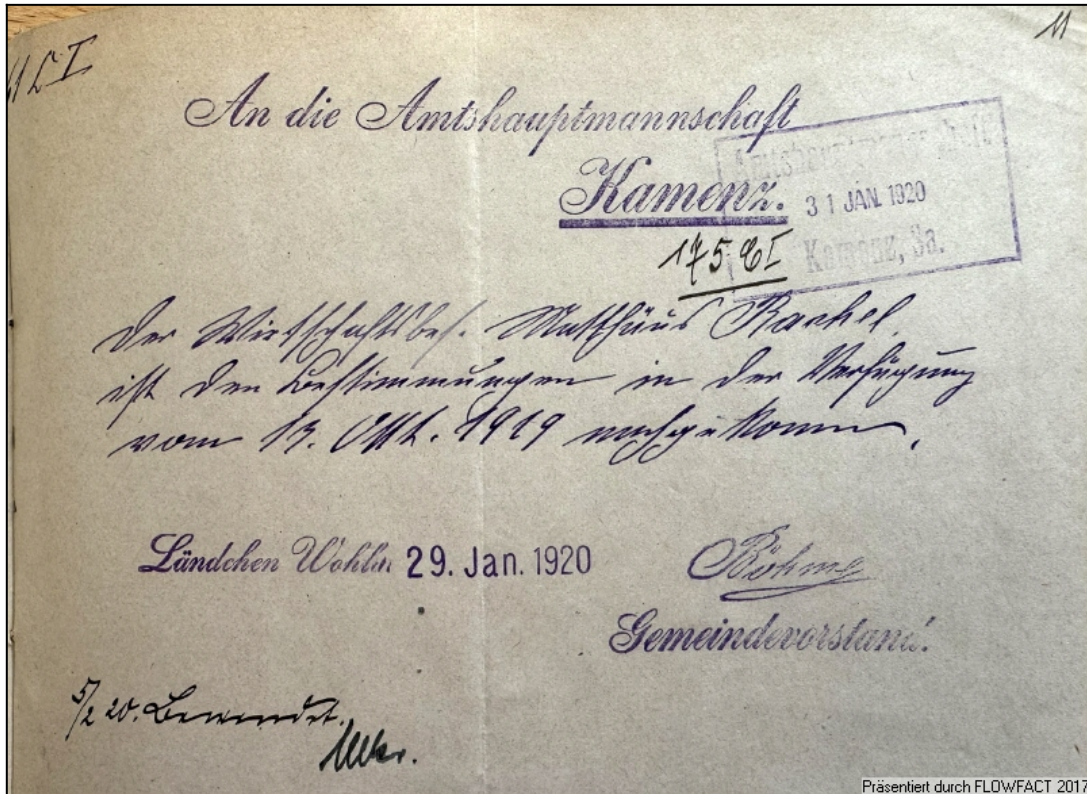 11
An die Amtshauptmannschaft
Kamenz.
Amtshauptmannschaft
31 JAN. 1920
Kamenz, Sa.
175 E I
Der Wirtschaftsbes. Matthäus Rackel
ist den Bestimmungen in der Verfügung
vom 13. Okt. 1919 nachgekommen.
Ländchen Wohla 29. Jan. 1920
Böhme
Gemeindevorstand.
5/2 20. Bewendet.
Präsentiert durch FLOWFACT 2017